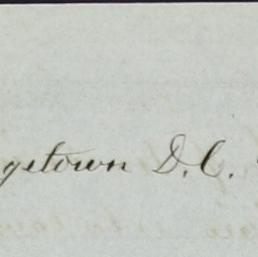 getown D.C.